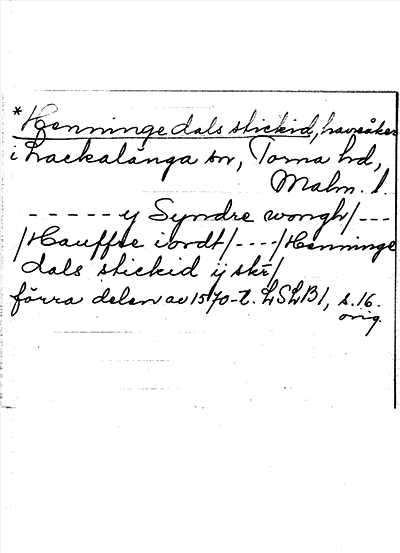 *Henningedals stickid, havreåker
i Lackalänga sn, Torna hd,
Malm. l.
----- y Syndre wongh/---
/Hauffre iordt/----/Henninge
dals stickid ij skr/
förra delen av 1570-t. LSLB1, s.16.
orig.